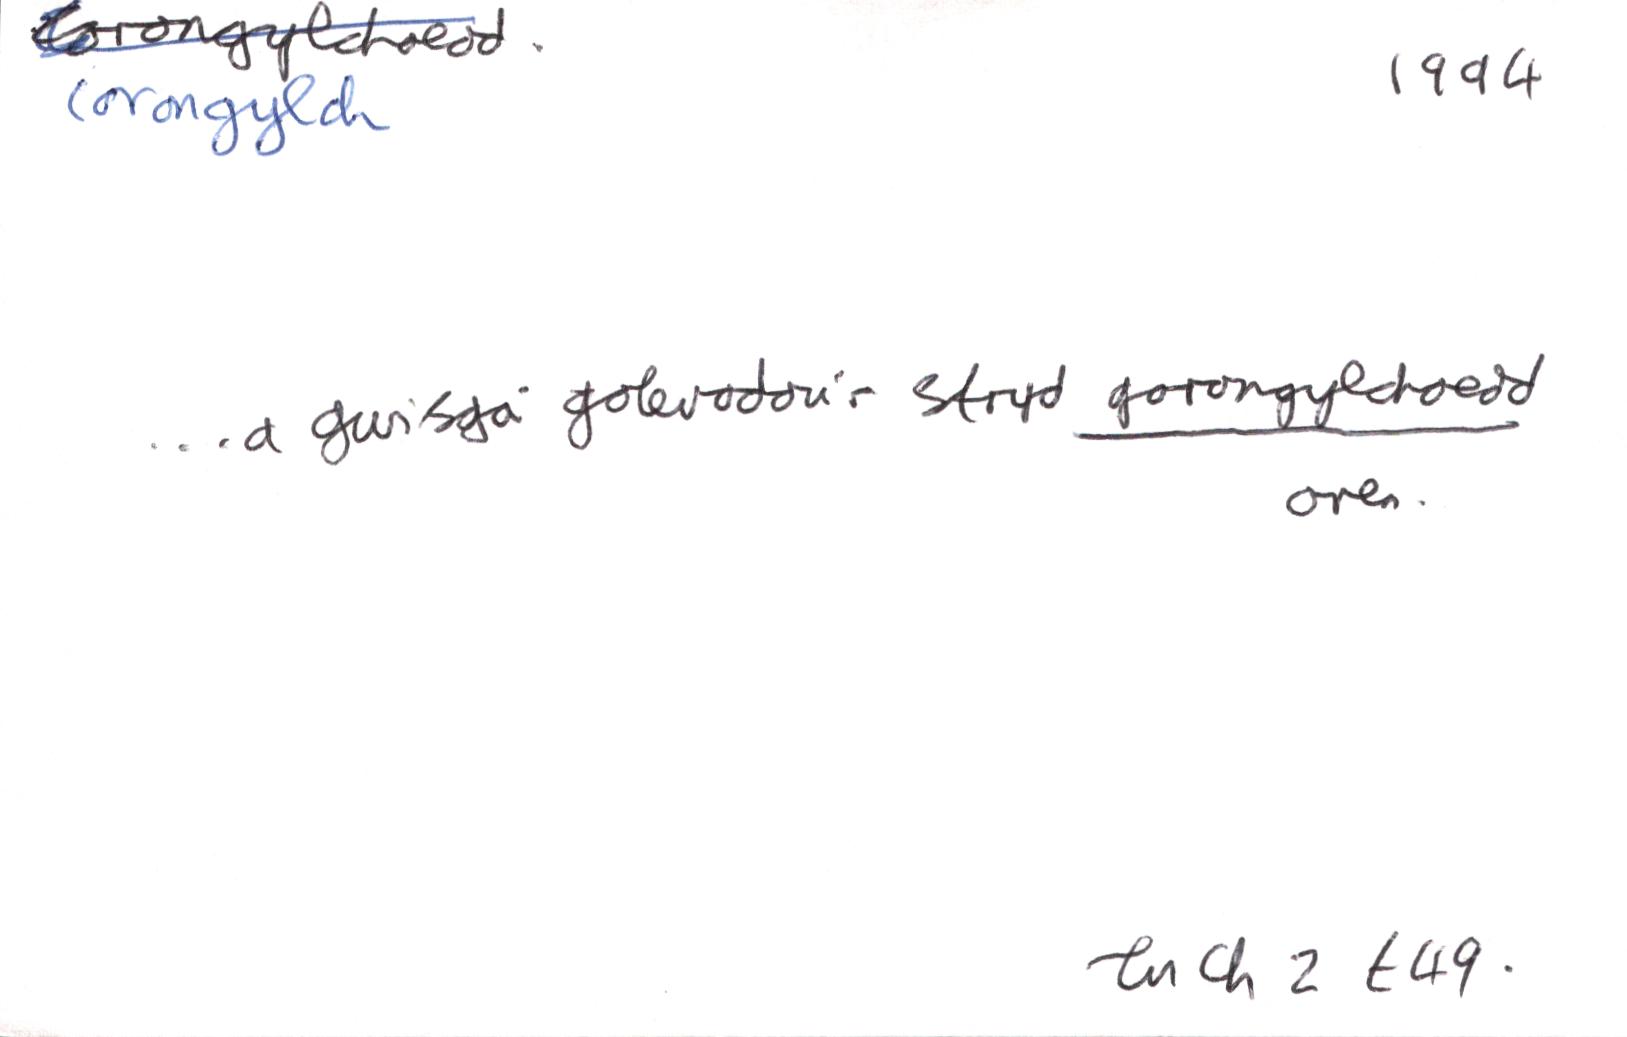 Corongylchoedd.
1994
corongylch
....a gwisga goleuadau'r stryd gorongylchoedd
oren.
Ch 2 t49.